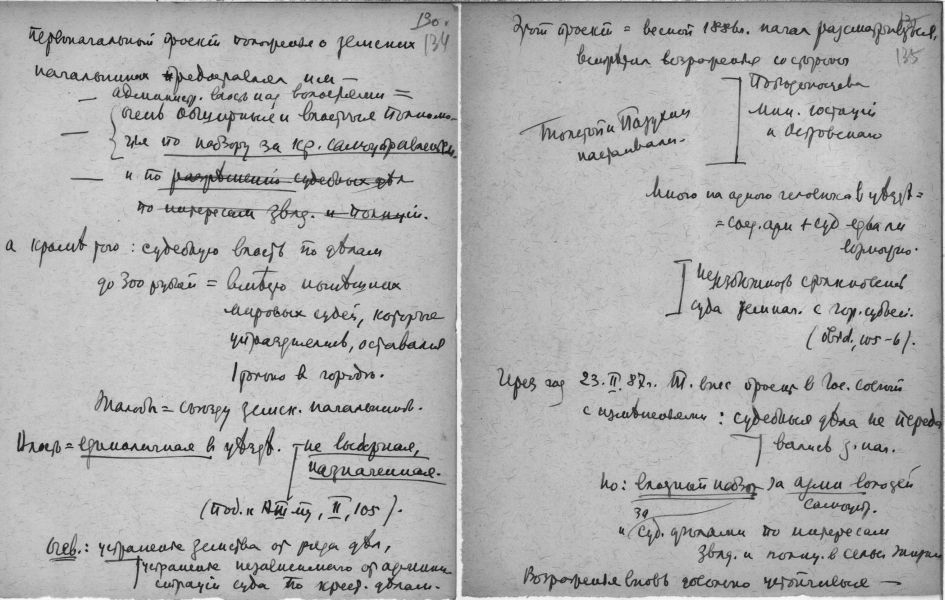 130.
134
Первоначальный проект положения о земских
начальниках предоставлял им —
— админист. власть над волостями =
очень обширные и властные полномо-
— чия по надзору за кр. самоуправлением.
— и по разрешению судебных дел
по интересам звд. и полиций.
а кроме того: судебную власть по дѣлам
до 300 рублей = вместо нынешних
мировых судей, которые
упразднялись, оставаясь
только в городе.
Жалобы = съезду земск. начальников.
Власть = единоличная в уѣзде. не выборная,
назначенная.
(Поб. к АIII, II, 105).
очев.: устранение земства от ряда дѣл,
устранение независимого от админи
страции суда по крест. дѣлам.
135
Этот проект = весной 1886г. начал рассматриваться,
встретил возражения со стороны
Победоносцева
мин. юстиции
и Островского
Толстой и Пазухин
настаивали.
Много на одного человека в уѣзде =
= соед. адм + суд едва ли
возможно.
Неизбежность столкновений
суда земнач. с гор. судьей.
(ibid, 105-6).
Через год 23.II.87г. Т. внес проект в Гос. совет
с изменениями: судебные дѣла не переда
вались з. нач.
Но: властный надзор за адми волостей
самоупр.
за
и суд. делами по интересам
звд. и полиц. в сельск. жизни
Возражения вновь довольно устойчивые —